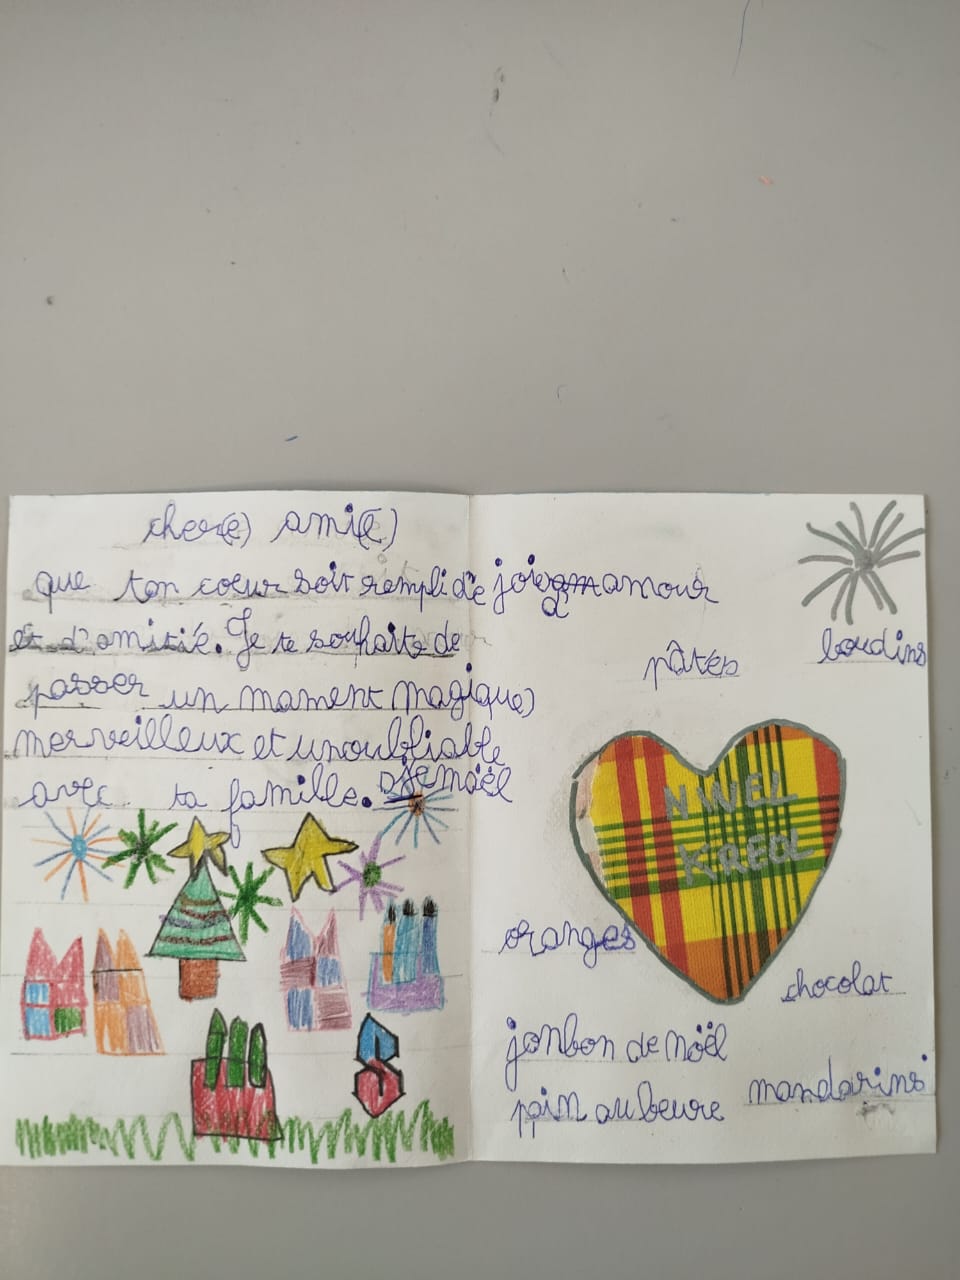 cher(e) ami(e)
que ton cœur soit rempli de joie d'amour
et d'amitié. Je te souhaite de
passer un mament magique)
merveilleux et unoubliable
avec ta famille. noël
boudins
pâtés
NWEL
KREOL
oranges
chocolat
jonbon de noël
mandarins
pain au beure